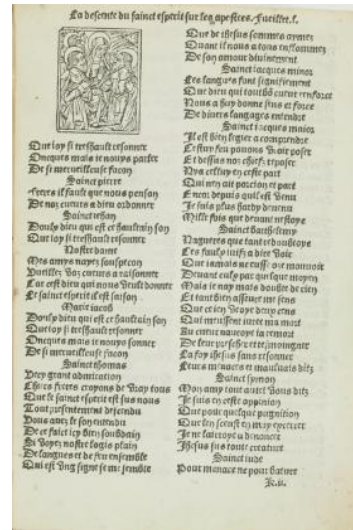 La descente du sainct esperit sur les apostres. Fueillet.l.
Que loy si treshault resonner
Oncques mais ie nouys parler
De si merueilleuse facon
Sainct pierre
Freres il fault que nous pensan
De noz cueurs a dieu ordonner
Sainct iehan
Douly dieu qui est ce haultain son
Que loy si treshault resonner
Nostre dame
Mes amys nayez souspecon
Vueillez voz cueurs a raisonner
Car cest dieu qui nous veult donner
Le sainct esperit il est saison
Marie iacob
Douly dieu qui est ce haultain son
Que loy si treshault resonner
Oncques mais ie nouys sonner
De si merueilleuse facon
Sainct thomas
Vecy grant admiration
Chiers freres croyons de vray tous
Que le sainct esperit est sus nous
Tout presentement descendu
Vous auez le son entendu
De ce faict icy bien soubdain
Si voyez nostre logis plain
De langues et de feu ensemble
Qui est vng signe se me semble
Que de ihesus sommes aymez
Quant il nous a tous enflammez
De son amour diuinement
Sainct iacques minor
Les langues sont signifiement
Que dieu qui tout cueur renforce
Nous a huy donne sens et force
De diuers langages entendre
Sainct iacques maior
Il est bien legier a comprendre
Ce feu pauons voit poser
Et dessus noz chefz reposer
Nya celluy en ceste part
Qui nen ait porcion et part
Encor depuis quil est venu
Je suis plus hardy deuenu
Mille fois que deuant nestoye
Sainct barthelemy
Nagueres que tant redoubtoye
Les faulx iuifz a dire voir
Que iamais ne eusse ose mouuoir
Deuant eulx pas quelque moyen
Mais ie nay mais doubte de rien
Et tant bien asseure me sens
Que et ien voyoie deux cens
Qui eussent iure ma mort
Au cueur nauroye la remort
De leur prescher et tesmoingner
La foy ihesus sans resonner
Leurs menaces et mauluais ditz
Sainct symon
Mon amy tout ainct vous ditz
Je suis en ceste oppinion
Que pour quelque pugnition
Que len sceust en moy exercer
Je ne lairroye a denoncer
Jhesus sus toute creature
Sainct iude
Pour menace ne pour bature
K.ii.